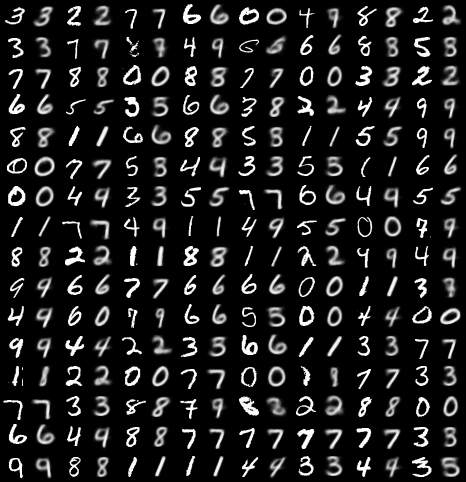 3 3 2 2 7 7 6 6 0 0 4 9 8 8 2 2
3 3 7 7 4 9 6 6 8 8 5 8
7 7 8 8 0 0 8 8 7 7 0 0 3 3 2 2
6 6 5 5 3 5 6 6 3 8 2 2 4 4 9 9
8 8 1 1 6 6 8 8 5 3 1 1 5 5 9 9
0 0 7 7 5 3 4 9 3 3 5 5 1 1 6 6
0 0 4 9 3 3 5 5 7 7 6 6 4 9 5 5
1 1 7 7 4 9 1 1 4 9 5 5 0 0 7 9
8 8 2 2 1 1 8 8 1 1 2 2 9 9 4 9
9 9 6 6 7 7 6 6 6 6 0 0 1 1 3 7
4 9 6 0 7 9 6 6 5 5 0 0 4 4 0 0
9 9 4 4 2 2 3 3 6 6 1 1 3 3 7 7
1 1 2 2 0 0 7 7 0 0 1 1 7 7 3 3
7 7 3 3 8 8 7 9 8 2 2 8 8 0 0
6 6 4 9 8 8 7 7 7 7 7 7 7 7 3 3
9 9 8 8 1 1 1 1 4 4 3 3 4 4 3 5